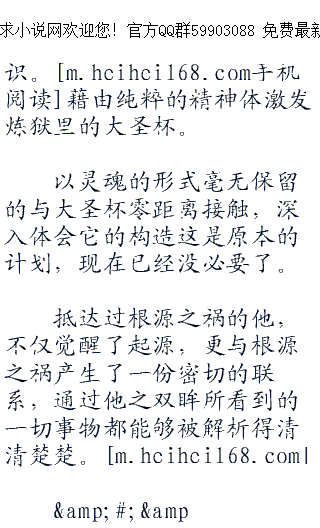 求小说网欢迎您! 官方QQ群59903088 免费最新
识。[m.hcihci168.com手机
阅读]藉由纯粹的精神体激发
炼狱里的大圣杯。
以灵魂的形式毫无保留
的与大圣杯零距离接触，深
入体会它的构造这是原本的
计划，现在已经没必要了。
抵达过根源之祸的他，
不仅觉醒了起源，更与根源
之祸产生了一份密切的联
系，通过他之双眸所看到的
一切事物都能够被解析得清
清楚楚。[m.hcihci168.com|
&amp;#;&amp